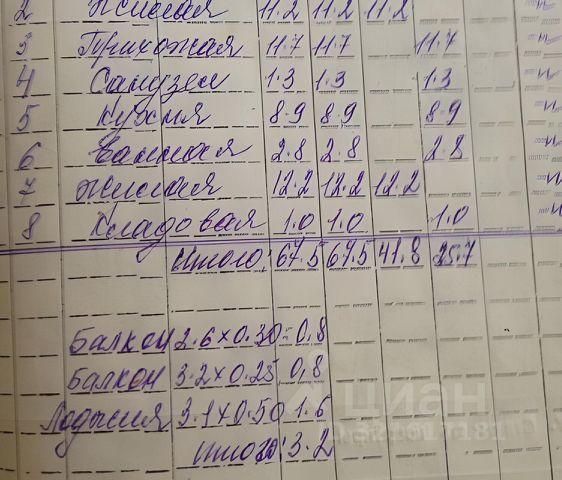 2 Жилая 11.2 11.2 11.2
3 Прихожая 11.7 11.7 11.7
4 Санузел 1.3 1.3 1.3
5 Кухня 8.9 8.9 8.9
6 Ванная 2.8 2.8 2.8
7 Жилая 12.2 12.2 12.2
8 Кладовая 1.0 1.0 1.0
Итого: 67.5 67.5 41.8 25.7
Балкон 2.6×0.30 = 0,8
Балкон 3.2×0.25 0,8
Лоджия 3.1×0.50 1.6
Итого: 3.2
циан